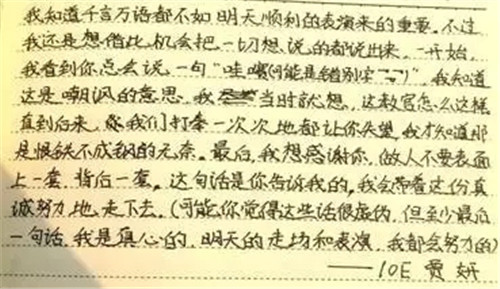 我知道千言万语都不如明天顺利的表演来的重要。不过
我还是想借此机会把一切想说的都说出来。一开始,
我看到你总会说一句“哇噻(可能是错别字~~)”,我知道
这是嘲讽的意思。我当时就想,这教官怎么这样
直到后来,我们打拳一次次地都让你失望,我才知道那
是恨铁不成钢的无奈。最后,我想感谢你,做人不要表面
上一套,背后一套。这句话是你告诉我的。我会带着这份真
诚努力地走下去。(可能你觉得这些话很虚伪,但至少最后
一句话,我是真心的,明天的走场和表演,我都会努力的)
——10E 贾妍